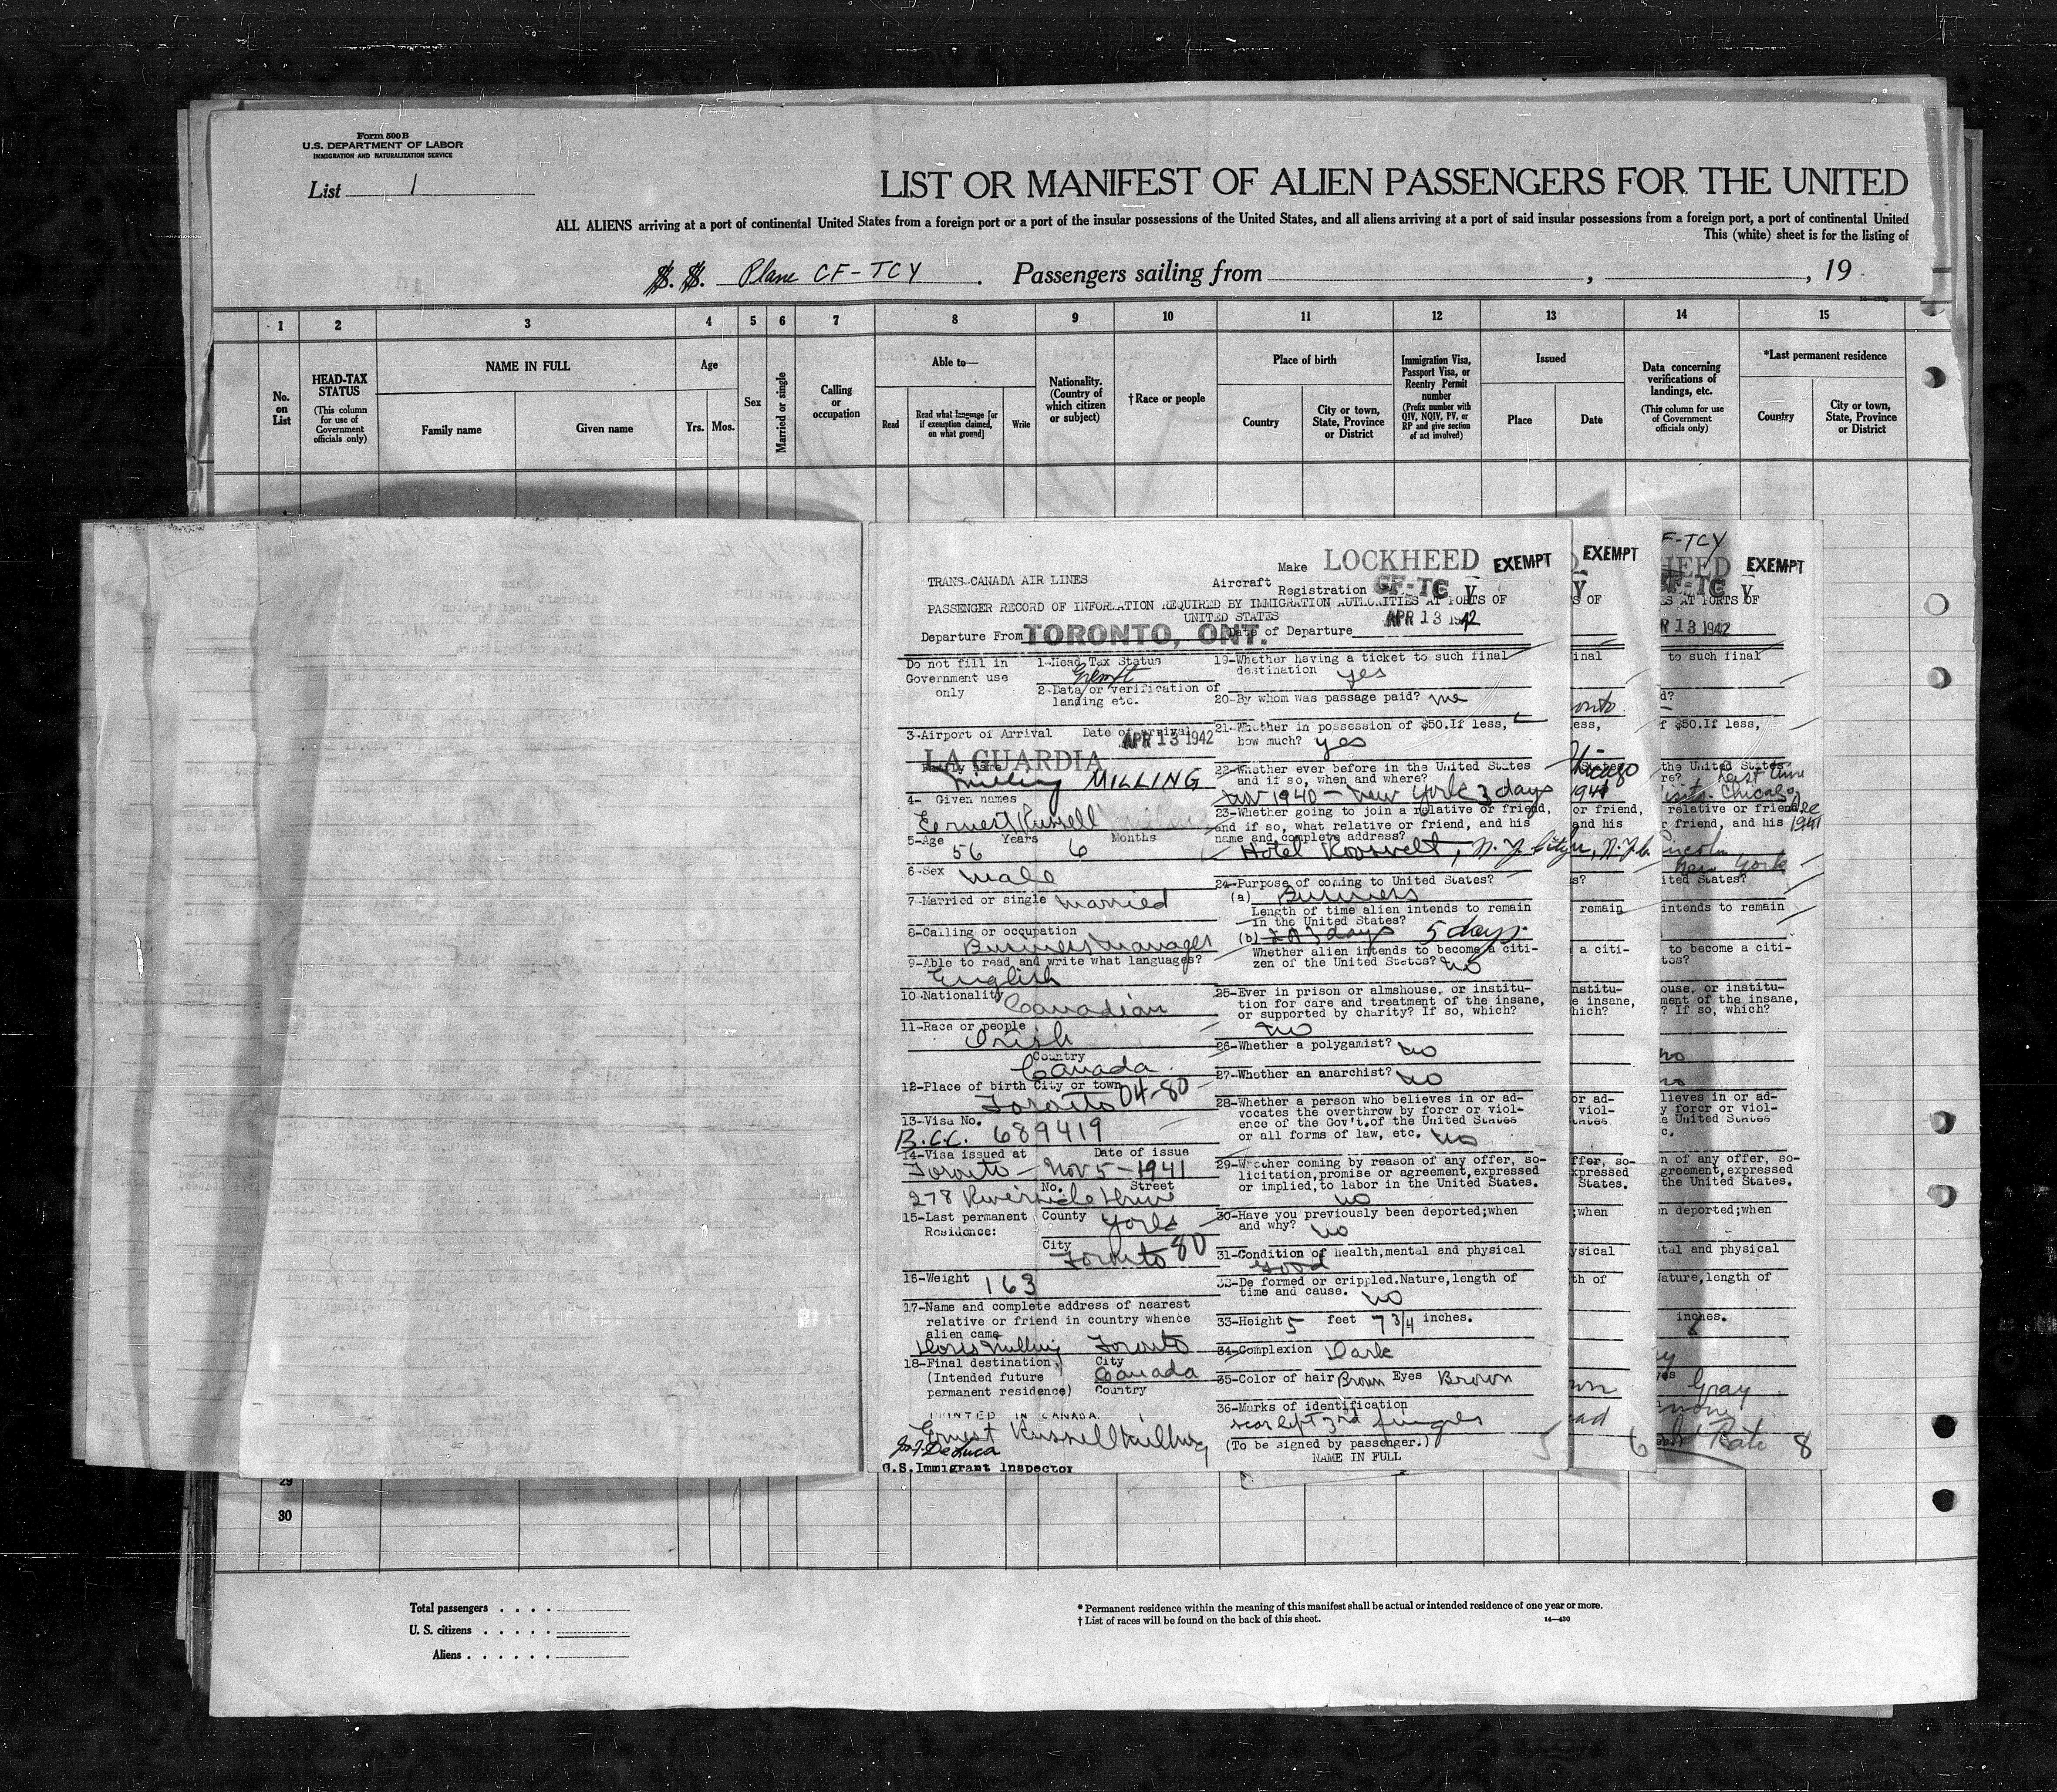 Form 500 B
U.S. DEPARTMENT OF LABOR
IMMIGRATION AND NATURALIZATION SERVICE
List 1
LIST OR MANIFEST OF ALIEN PASSENGERS FOR THE UNITED
ALL ALIENS arriving at a port of continental United States from a foreign port or a port of the insular possessions of the United States, and all aliens arriving at a port of said insular possessions from a foreign port, a port of continental United
This (white) sheet is for the listing of
S. S. Plane CF-TCY. Passengers sailing from , , 19
1 2 3 4 5 6 7 8 9 10 11 12 13 14 15
No. on List
HEAD-TAX STATUS
(This column for use of Government officials only)
NAME IN FULL
Family name
Given name
Age
Yrs. Mos.
Sex
Married or single
Calling or occupation
Able to—
Read
Read what language [or if exemption claimed, on what ground]
Write
Nationality. (Country of which citizen or subject)
† Race or people
Place of birth
Country
City or town, State, Province or District
Immigration Visa, Passport Visa, or Reentry Permit number
(Prefix number with QIV, NQIV, PV, or RP and give section of act involved)
Issued
Place
Date
Data concerning verifications of landings, etc.
(This column for use of Government officials only)
*Last permanent residence
Country
City or town, State, Province or District
TRANS-CANADA AIR LINES
Make LOCKHEED EXEMPT
Aircraft Registration CF-TC Y
PASSENGER RECORD OF INFORMATION REQUIRED BY IMMIGRATION AUTHORITIES AT PORTS OF
UNITED STATES
Departure From TORONTO, ONT. Date of Departure APR 13 1942
Do not fill in
Government use
only
1-Head Tax Status
Exempt
2-Data or verification of
landing etc.
3-Airport of Arrival Date of arrival
LA GUARDIA APR 13 1942
Family name
Milling MILLING
4- Given names
Ernest Russell
5-Age 56 Years 6 Months
6-Sex male
7-Married or single married
8-Calling or occupation
Business Manager
9-Able to read and write what languages?
English
10-Nationality Canadian
11-Race or people
Irish
Country
Canada
12-Place of birth City or town 04-80
Toronto
13-Visa No.
B.C.C. 689419
14-Visa issued at Date of issue
Toronto - Nov 5-1941
No. Street
278 Riverside Drive
15-Last permanent
Residence:
County York
City
Toronto 80
16-Weight 163
17-Name and complete address of nearest
relative or friend in country whence
alien came
Doris Milling Toronto
18-Final destination,
(Intended future
permanent residence)
City
Canada
Country
PRINTED IN CANADA.
Ernest Russell Milling
De Luca
U.S. Immigrant Inspector
19-Whether having a ticket to such final
destination yes
20-By whom was passage paid? me
21-Whether in possession of $50.If less,
how much? yes
22-Whether ever before in the United States
and if so, when and where?
Nov 1940 - New York 3 days
23-Whether going to join a relative or friend,
and if so, what relative or friend, and his
name and complete address?
Hotel Roosevelt, N.Y. City
24-Purpose of coming to United States?
(a) Business
Length of time alien intends to remain
in the United States?
(b) 5 days.
Whether alien intends to become a citi-
zen of the United States? no
25-Ever in prison or almshouse, or institu-
tion for care and treatment of the insane,
or supported by charity? If so, which?
no
26-Whether a polygamist? no
27-Whether an anarchist? no
28-Whether a person who believes in or ad-
vocates the overthrow by forcr or viol-
ence of the Gov't.of the United States
or all forms of law, etc. no
29-Whether coming by reason of any offer, so-
licitation, promise or agreement, expressed
or implied, to labor in the United States.
no
30-Have you previously been deported;when
and why? no
31-Condition of health,mental and physical
Good
32-De formed or crippled.Nature,length of
time and cause. no
33-Height 5 feet 7 3/4 inches.
34-Complexion Dark
35-Color of hair Brown Eyes Brown
36-Marks of identification
scar left 3rd finger
(To be signed by passenger.)
NAME IN FULL
5
EXEMPT
Chicago
6
F-TCY
EXEMPT
R 13 1942
to such final
f $50.If less,
the United States
Chicago
Dec 1941
relative or friend
r friend, and his
New York
ited States?
intends to remain
to become a citi-
ouse, or institu-
ment of the insane,
? If so, which?
no
no
lieves in or ad-
y forcr or viol-
e United States
n of any offer, so-
greement, expressed
the United States.
n deported;when
tal and physical
Nature,length of
inches.
Gray
none
8
29
30
Total passengers
U. S. citizens
Aliens
* Permanent residence within the meaning of this manifest shall be actual or intended residence of one year or more.
† List of races will be found on the back of this sheet.
14—430